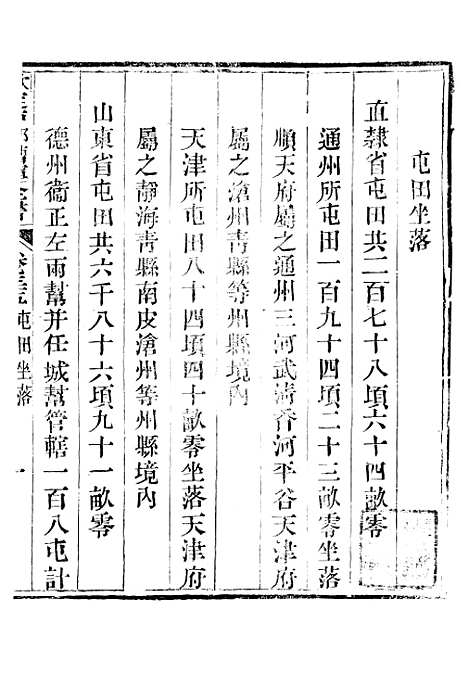 屯田坐落
直隸省屯田共二百七十八頃六十四畝零
通州所屯田一百九十四頃二十三畝零坐落
順天府屬之通州三河武清香河平谷天津府
屬之滄州青縣等州縣境内
天津所屯田八十四頃四十畝零坐落天津府
屬之靜海青縣南皮滄州等州縣境内
山東省屯田共六千八十六頃九十一畝零
德州衞正左兩幫并任城幫管轄一百八屯計
屯田坐落
一